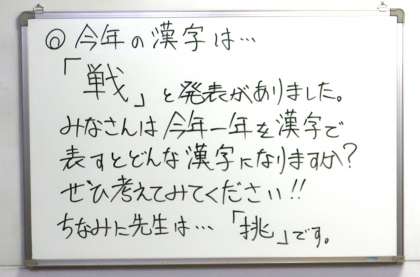 ◎今年の漢字は…
「戦」と発表がありました。
みなさんは今年一年を漢字で
表すとどんな漢字になりますか?
ぜひ考えてみてください!!
ちなみに先生は…「挑」です。